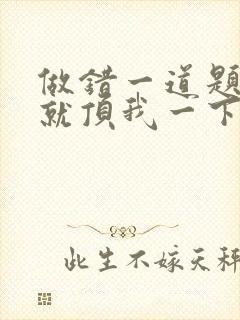 做错一道题
就頂我一下
此生不嫁天秤